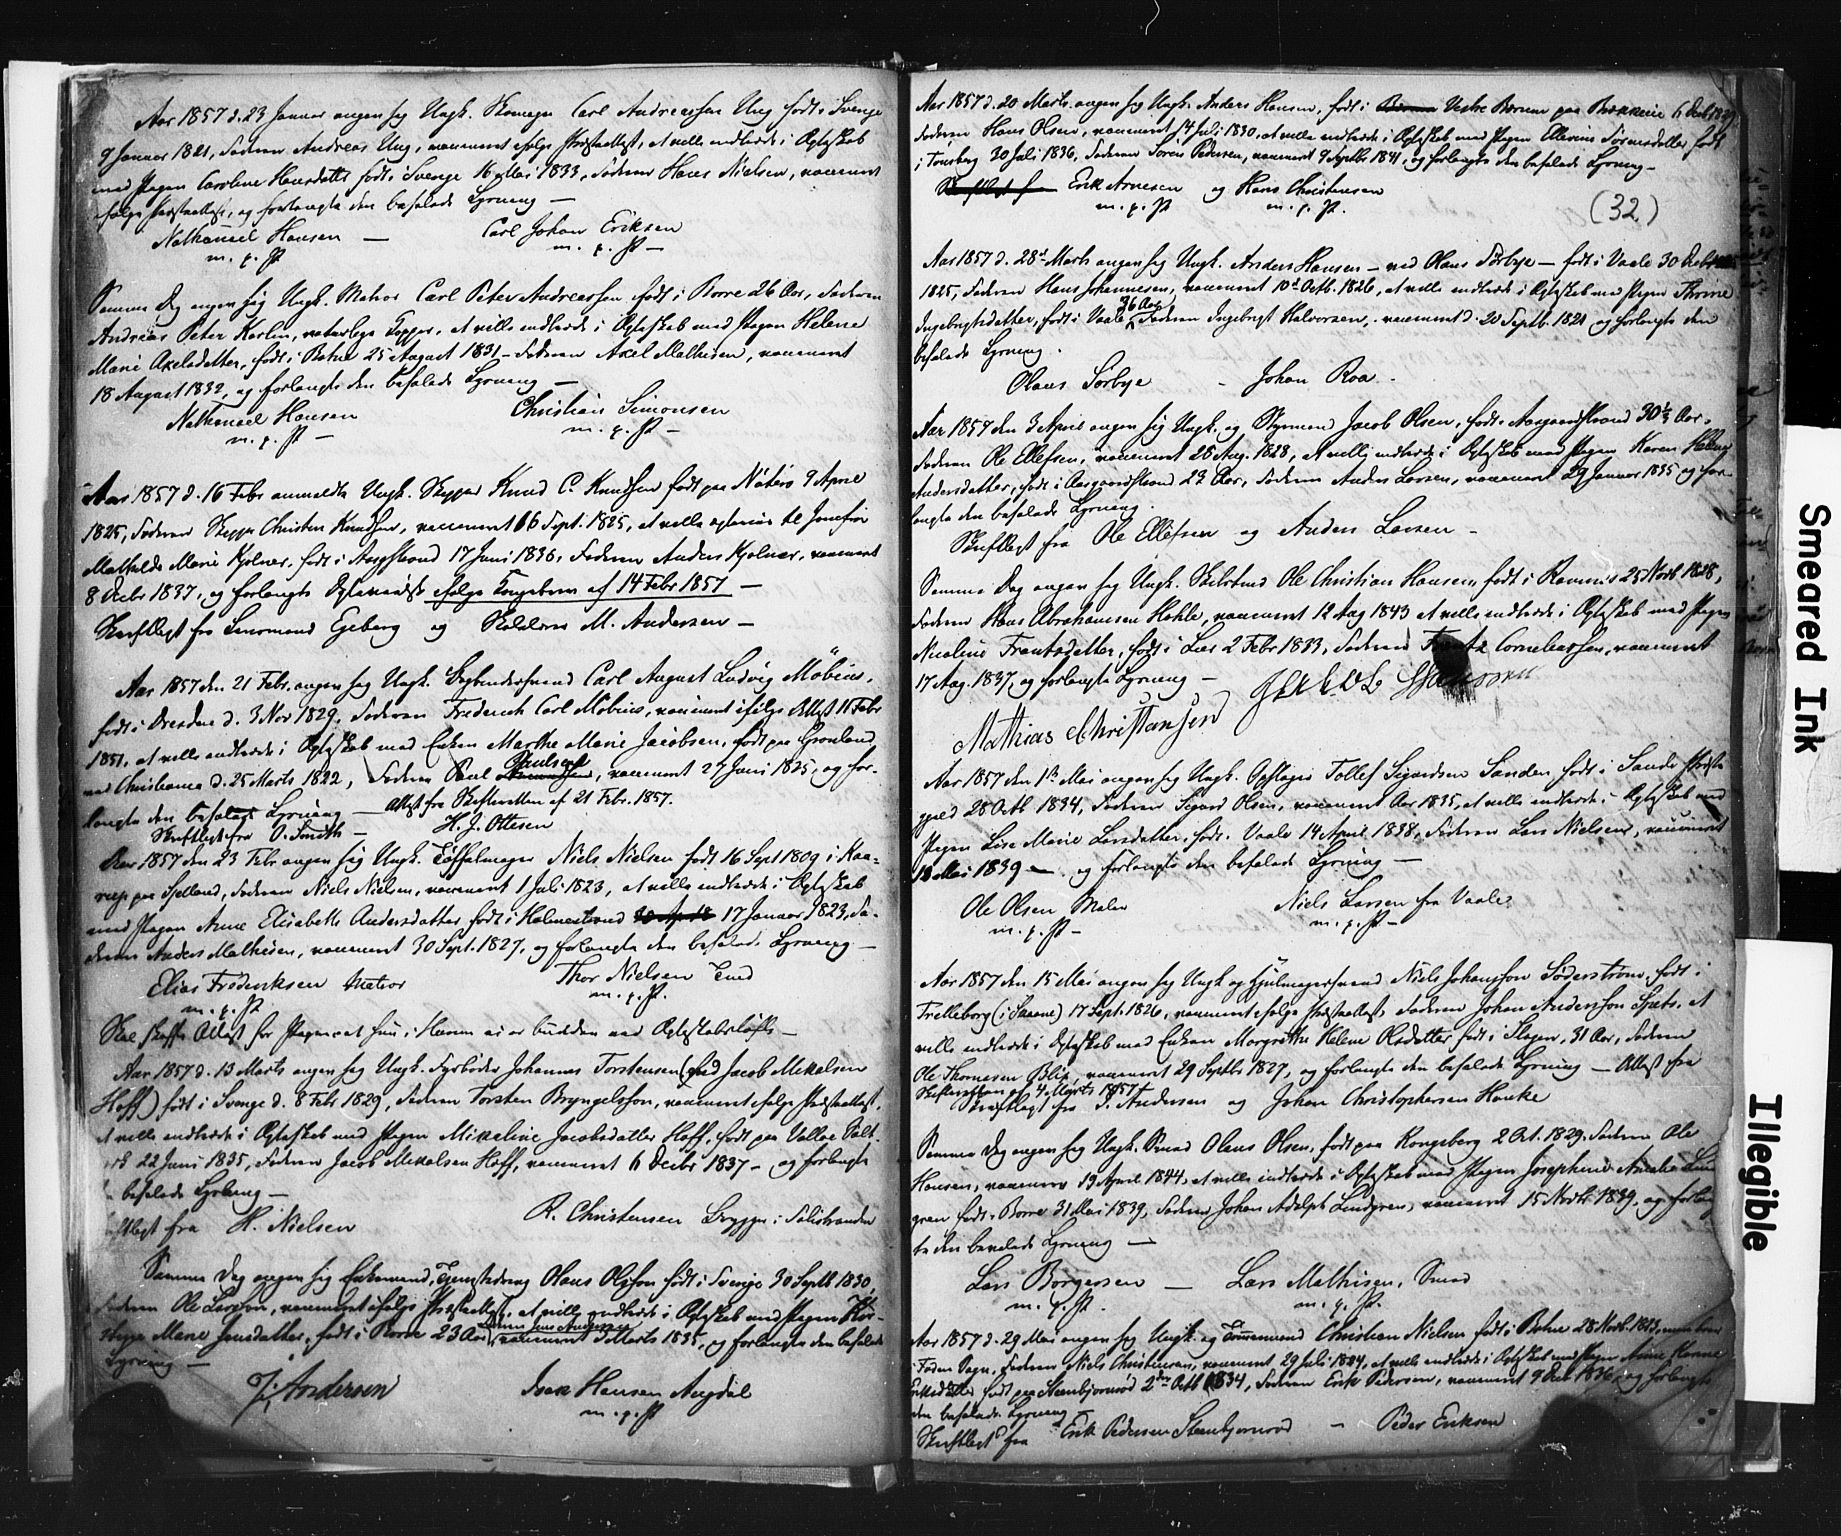 Aar 1857 d. 23 Januar angav sig Ungk. Skomager Carl Andreassen Ung født i Sverige
9 Januar 1821, Faderen Andreas Ung, vaccineret ifølge Præsteattest, at ville indtræde i Ægteskab
med Pigen Caroline Hansdatter født i Sverige 16 Mai 1833, Faderen Hans Nielsen, vaccineret
ifølge Præsteattest, og forlangte den befalede Lysning —
Nathanael Hansen — Carl Johan Eriksen
m. p. P. m. p. P. —
Samme Dag angav sig Ungk. Matros Carl Peter Andreassen født i Borre 26 Aar, Faderen
Andreas Peter Karlsen, naturlige Kopper, at ville indtræde i Ægteskab med Pigen Helene
Marie Axelsdatter, født i Botne 25 August 1831 – Faderen Axel Mathisen, vaccineret
18 August 1832, og forlangte den befalede Lysning —
Nathanael Hansen Christian Simonsen
m. p. P. — m. p. P. —
Aar 1857 d. 16 Febr anmeldte Ungk. Skipper Knud C. Knudsen født paa Nøterø 9 April
1825, Faderen Skipper Christen Knudsen, vaccineret 16 Sept. 1825, at ville ægtevies til Jomfru
Mathilde Marie Kjølner, født i Aasgstrand 17 Juni 1836, Faderen Anders Kjølner, vaccineret
8 Decbr 1837, og forlangte Ægtevielse ifølge Kongebrev af 14 Febr 1857 —
Skriftligt fra Lensmand Egeberg og Skolelærer M. Andersen —
Aar 1857 den 21 Febr. angav sig Ungk. Bogbindersvend Carl August Ludvig Möbius,
født i Dresden d. 3 Nov 1829, Faderen Frederich Carl Möbius, vaccineret ifølge Attest 11 Febr
1851, at ville indtræde i Ægteskab med Enken Marthe Marie Jacobsen, født paa Grønland
ved Christiania d. 25 Marts 1822, Faderen Poul Poulsen, vaccineret 27 Juni 1825, og for-
langte den befalede Lysning — Attest fra Skifteretten af 21 Febr. 1857.
Skriftligt fra O. Smith — H. J. Ottesen
Aar 1857 den 23 Febr angav sig Ungk. Tøffelmager Niels Nielsen født 16 Sept 1809 i Kaa-
rup paa Sjelland, Faderen Niels Nielsen, vaccineret 1 Juli 1823, at ville indtræde i Ægteskab
med Pigen Anne Elisabeth Andersdatter født i Holmestrand 17 Januar 1823, Fa-
deren Anders Mathisen, vaccineret 30 Sept. 1827, og forlangte den befalede Lysning —
Elias Frederiksen Matros Thor Nielsen
m. p. P. m. p. P.
Skal skaffe Attest for Pigen, at hun i Horten ei er bunden ved Ægteskabsløfte —
Aar 1857 d. 13 Marts angav sig Ungk. Fyrbøder Johannes Torstensen (hos Jacob Mikalsen
Hoff) født i Sverige d. 8 Febr 1829, Faderen Torsten Bryngelsson, vaccineret ifølge Præsteattest,
at ville indtræde i Ægteskab med Pigen Mikaline Jacobsdatter Hoff, født paa Valløe Salt-
verk 22 Juni 1835, Faderen Jacob Mikalsen Hoff, vaccineret 6 Decbr 1837 – og forlangte
befalede Lysning —
fra H. Nielsen R. Christensen Brygge i Falkstranden
Samme Dag angav sig Enkemand, Olaus Olsson født i Sverige 30 Septb 1830,
Faderen Ole Larsson, vaccineret ifølge Præsteattest, at ville indtræde i Ægteskab med Pigen Kir-
stine Marie Jensdatter, født i Borre 23 Aar, Faderen Jens Andersen vaccineret 3 Marts 1835, og forlangte den befalede
Lysning —
J. Andersen Isak Hansen Augdal
m. p. P.
Aar 1857 d. 20 Marts angav sig Ungk. Anders Hansen, født i Vestre Bærum paa Bækkeie 6 Decb 1829
Faderen Hans Olsen, vaccineret 14 Juli 1830, at ville indtræde i Ægteskab med Pigen Olevine Sørensdatter født
i Tønsberg 30 Juli 1836, Faderen Søren Pedersen, vaccineret 9 Septb 1841, og forlangte den befalede Lysning —
Erik Arnesen og Hans Christensen
m. p. P. m. p. P.
(32)
Aar 1857 d. 28de Marts angav sig Ungk. Anders Hansen — ved Olaus Sørbye — født i Vaale 30 Decbr
1825, Faderen Hans Johannesen, vaccineret 10de Octb. 1826, at ville indtræde i Ægteskab med Pigen Thrine
Ingebrigtsdatter, født i Vaale 36 Aar, Faderen Ingebrigt Halvorsen, vaccineret d. 20 Septb. 1821 og forlangte den
befalede Lysning.
Olaus Sørbye – Johan Roa –
Aar 1857 den 3 April angav sig Ungk. og Styrmand Jacob Olsen, født i Aasgaardstrand 30½ Aar,
Faderen Ole Ellefsen, vaccineret 28 Aug. 1828, at ville indtræde i Ægteskab med Pigen Karen Helene
Andersdatter, født i Aasgaardstrand 23 Aar, Faderen Anders Larsen, vaccineret 29 Januar 1835 og for-
langte den befalede Lysning.
Skriftligt fra Ole Ellefsen og Anders Larsen –
Samme Dag angav sig Ungk. Ole Christian Hansen, født i Ramnes 25 Novb 1828,
Faderen Hans Abrahamsen Hakle, vaccineret 12 Aug 1843 at ville indtræde i Ægteskab med Pigen
Nicoline Frantsdatter, født i Lier 2 Febr 1833, Faderen Frants Corneliussen, vaccineret
17 Aug. 1837, og forlangte Lysning —
Mathias Christiansen
Aar 1857 den 1ste Mai angav sig Ungk. Tollef Sigurdsen Sanden født i Sande Præste-
gjeld 28 Octb 1834, Faderen Sigurd Olsen, vaccineret Aar 1835, at ville indtræde i Ægteskab med
Pigen Lise Marie Larsdatter, født i Vaale 14 April 1838, Faderen Lars Nielsen, vaccineret
18 Mai 1839 — og forlangte den befalede Lysning —
Ole Olsen Maler Niels Larsen fra Vaale
m. p. P. — m. p. P. —
Aar 1857 den 15 Mai angav sig Ungk og Hjulmagersvend Niels Johansson Søderstrøm, født i
Trelleborg (i Skaane) 17 Sept. 1826, vaccineret ifølge Præsteattest, Faderen Johan Andersson Spets, at
ville indtræde i Ægteskab med Enken Margrethe Helene Olsdatter født i Slagen, 31 Aar, Faderen
Ole Thomesen Blix, vaccineret 29 Septb 1827, og forlangte den befalede Lysning — Attest fra
Skifteretten af 4 Marts 1857
Skriftligt fra T. Andersen og Johan Christophersen Hauke
Samme Dag angav sig Ungk. Smed Olaus Olsen, født paa Kongsberg 2 Oct. 1829, Faderen Ole
Hansen, vaccineret 19 April 1844, at ville indtræde i Ægteskab med Pigen Josephine Amalie Lind-
gren født i Borre 31 Mai 1839, Faderen Johan Adolph Lindgren, vaccineret 15 Novb 1839, og forlang-
te den befalede Lysning —
Lars Borgersen — Lars Mathisen, Smed
m. p. P. m. p. P.
Aar 1857 d. 29 Mai angav sig Ungk. og Tømmermand Christian Nielsen født i Botne 28 Novb. 1813,
Faderen Niels Christensen, vaccineret 29 Juli 1824, at ville indtræde i Ægteskab med Pigen Anne
Eriksdatter født paa Steenbjørnrød 2den Octb 1834, Faderen Erik Pedersen, vaccineret 9 Oct 1836, og forlangte
den befalede Lysning —
Skriftligt fra Erik Pedersen Steenbjørnrød — Peder Eriksen
Smeared Ink
Illegible